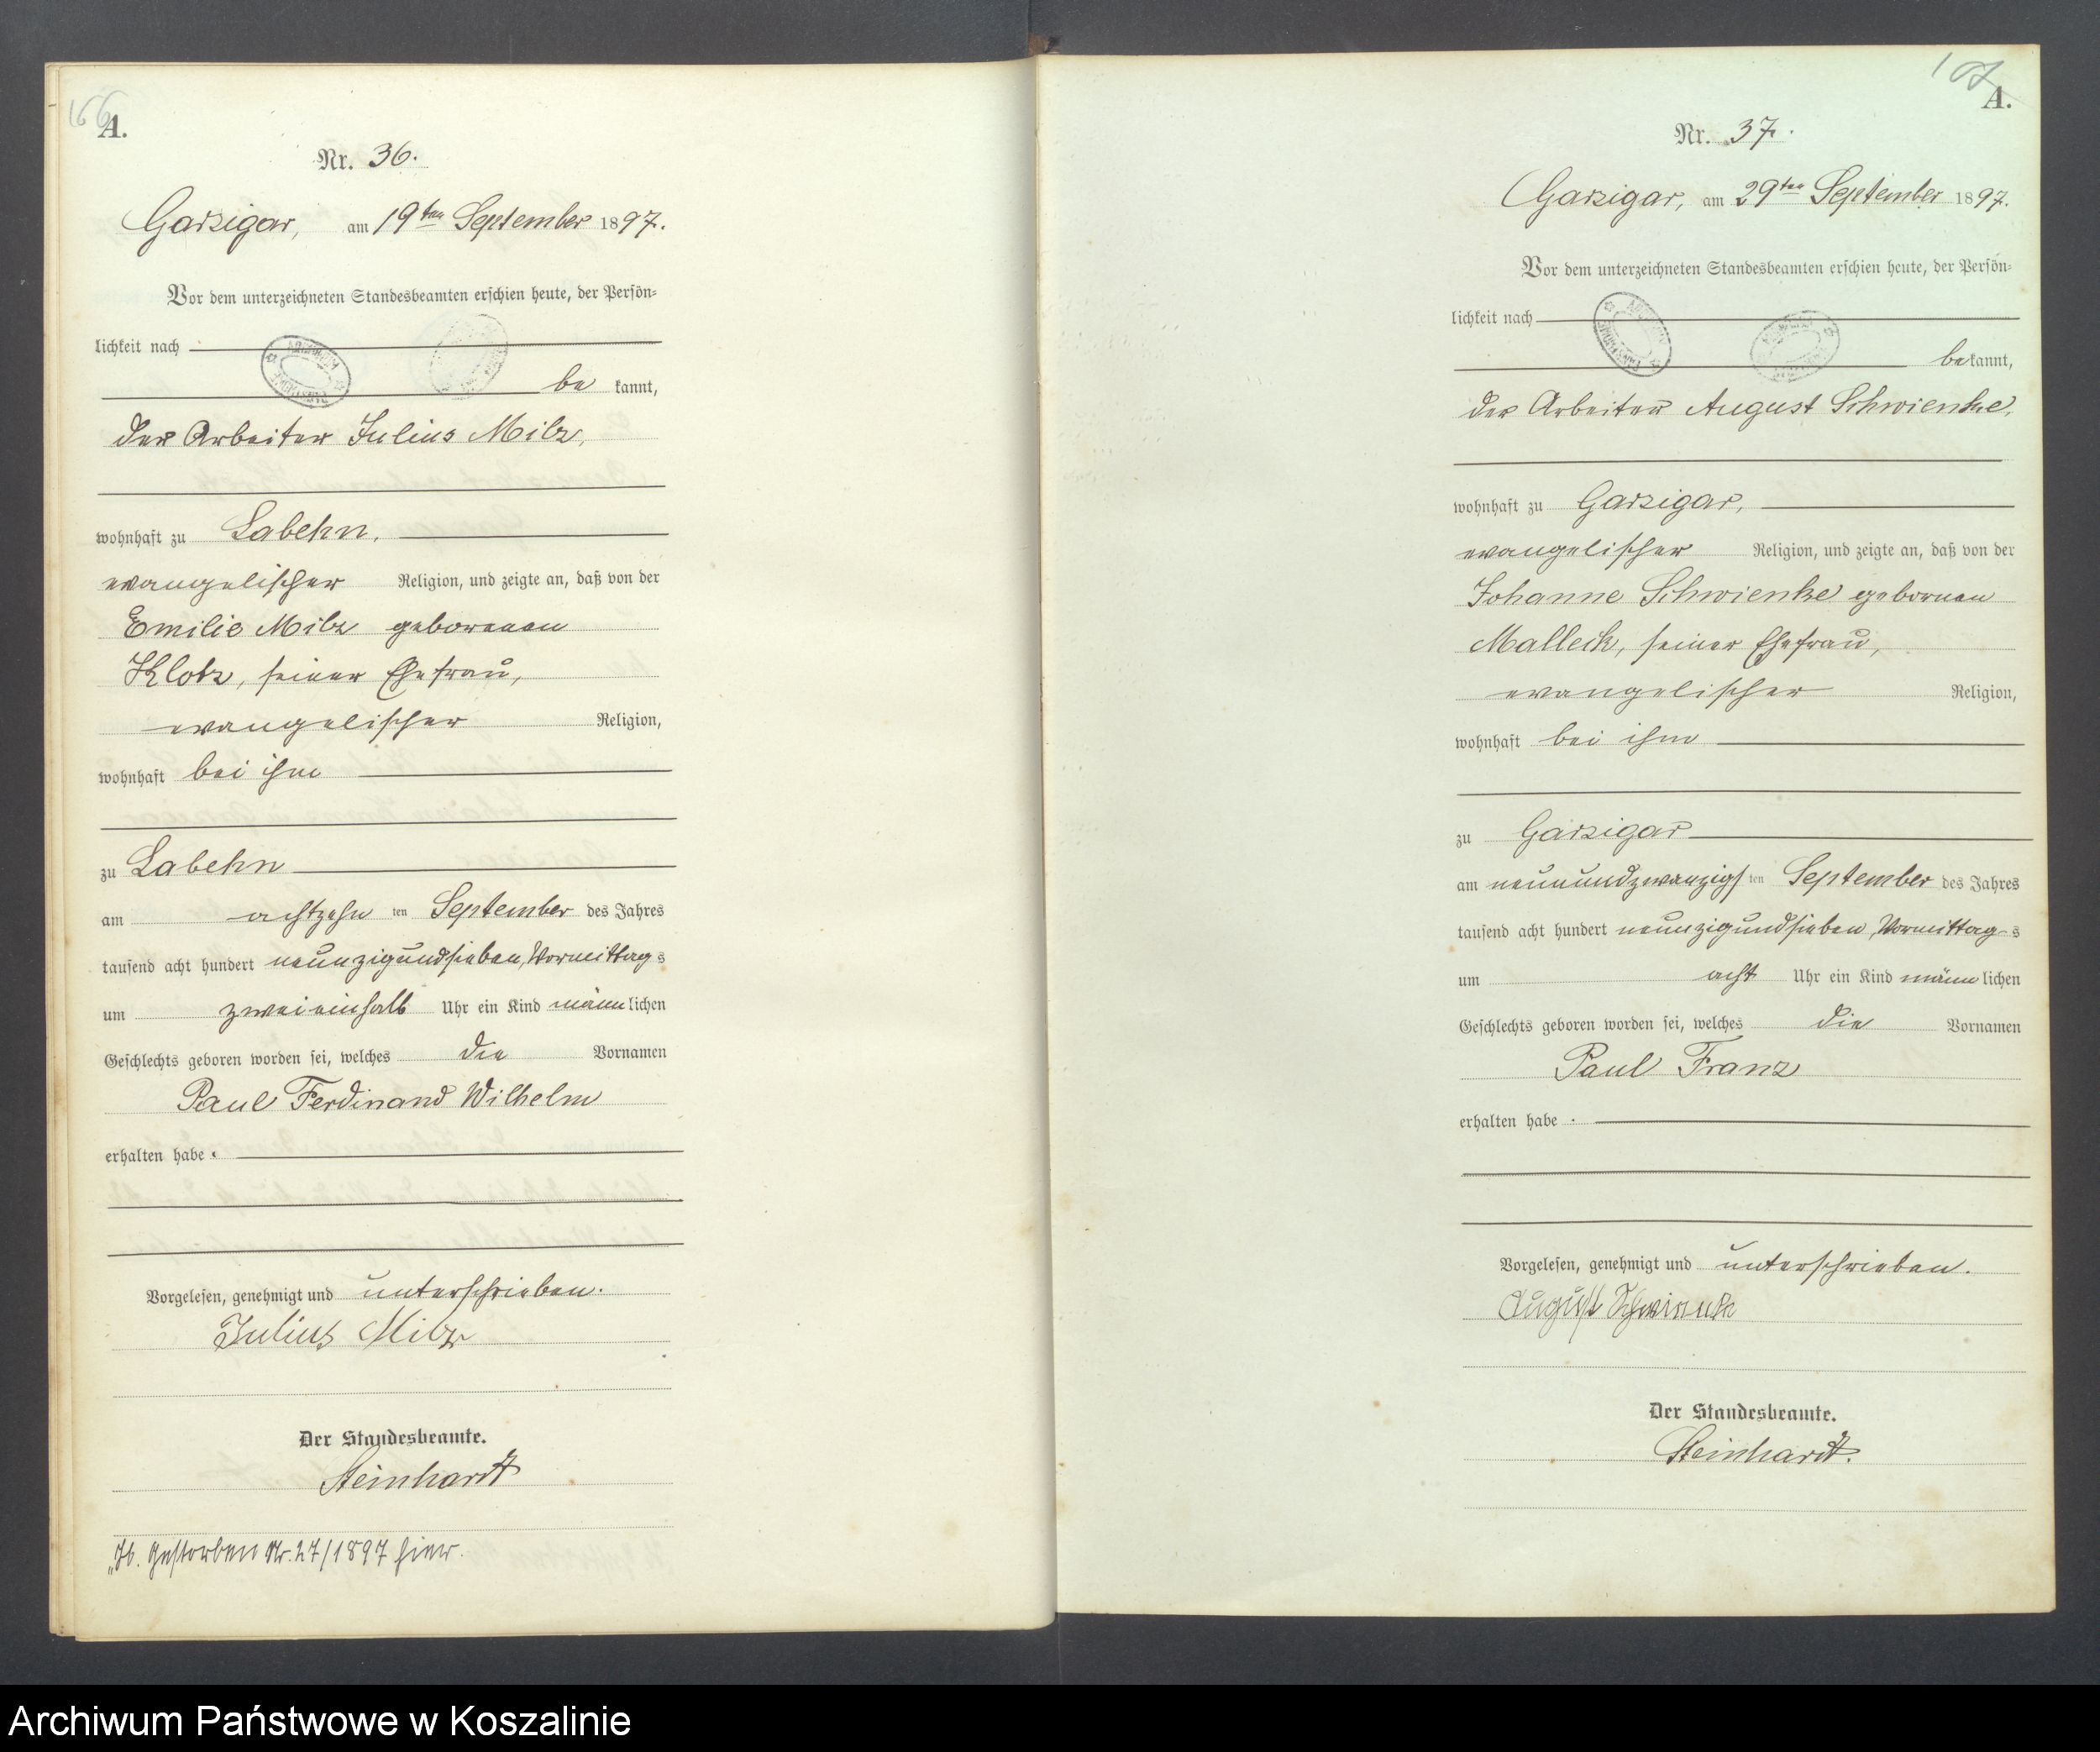 166
A.
Nr. 36.
Garzigar, am 19ten September 1897.
Vor dem unterzeichneten Standesbeamten erschien heute, der Persön-
lichkeit nach
be kannt,
der Arbeiter Julius Milz,
wohnhaft zu Labehn,
evangelischer Religion, und zeigte an, daß von der
Emilie Milz geborenen
Klotz, seiner Ehefrau,
evangelischer Religion,
wohnhaft bei ihm
zu Labehn
am achtzehn ten September des Jahres
tausend acht hundert neunzigundsieben, Vormittag s
um zweieinhalb Uhr ein Kind männ lichen
Geschlechts geboren worden sei, welches die Vornamen
Paul Ferdinand Wilhelm
erhalten habe.
Vorgelesen, genehmigt und unterschrieben.
Julius Milz
Der Standesbeamte.
Steinhardt
Gestorben Nr. 27/1897 hier.
107
A.
Nr. 37.
Garzigar, am 29ten September 1897.
Vor dem unterzeichneten Standesbeamten erschien heute, der Persön-
lichkeit nach
be kannt,
der Arbeiter August Schwienke,
wohnhaft zu Garzigar,
evangelischer Religion, und zeigte an, daß von der
Johanne Schwienke gebornen
Malleck, seiner Ehefrau,
evangelischer Religion,
wohnhaft bei ihm
zu Garzigar
am neunundzwanzigs ten September des Jahres
tausend acht hundert neunzigundsieben, Vormittag s
um acht Uhr ein Kind männ lichen
Geschlechts geboren worden sei, welches die Vornamen
Paul Franz
erhalten habe.
Vorgelesen, genehmigt und unterschrieben.
August Schwienke
Der Standesbeamte.
Steinhardt.
Archiwum Państwowe w Koszalinie